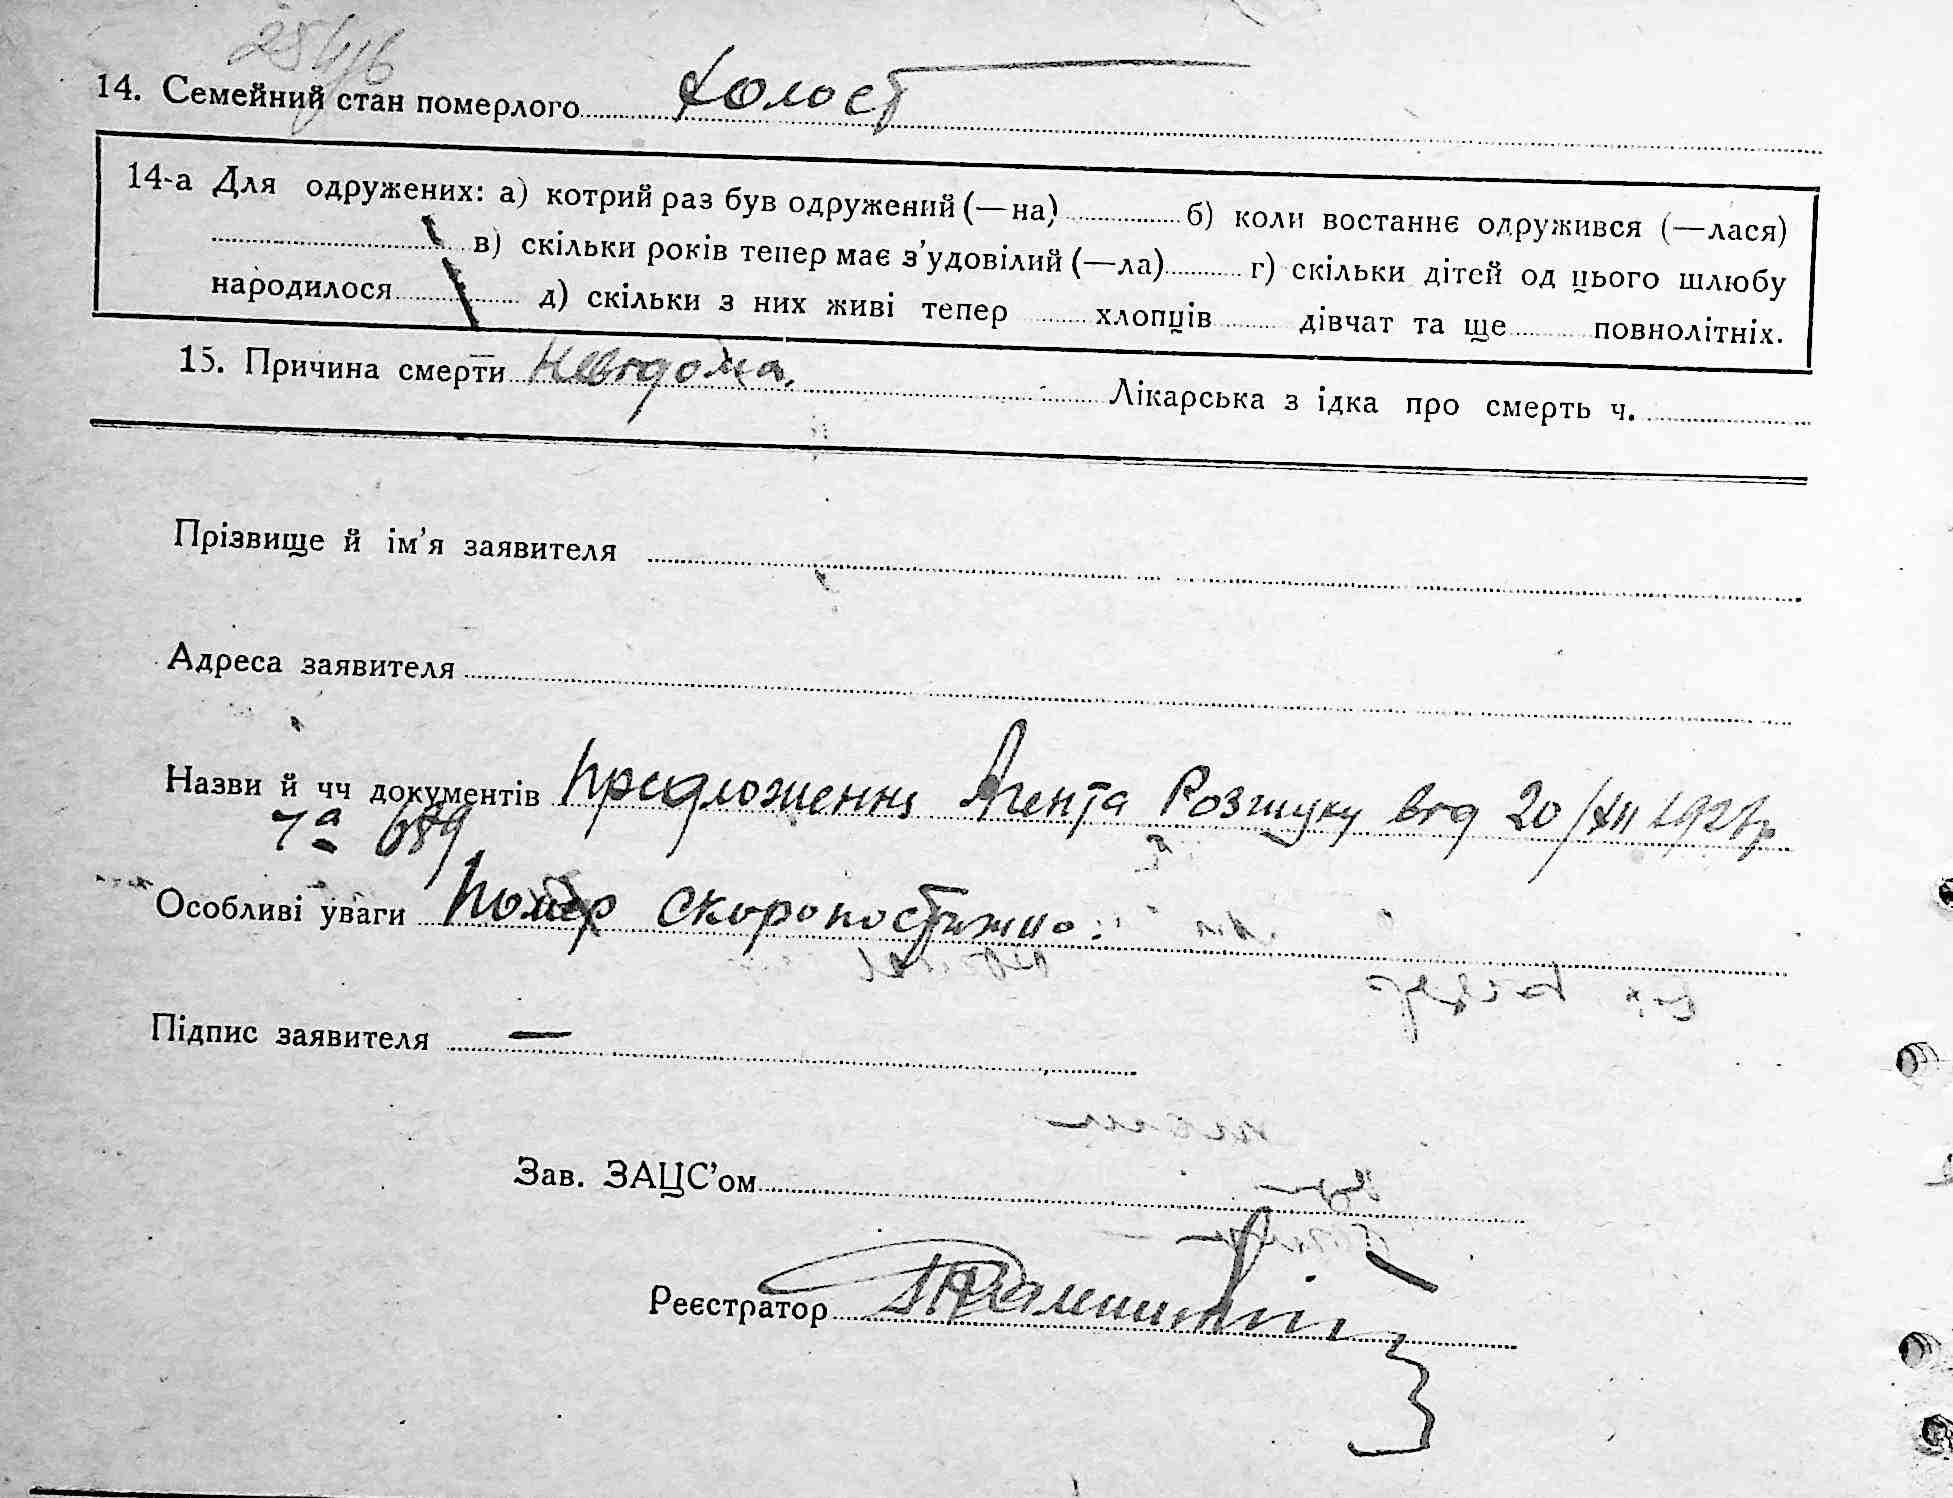 14. Семейний стан померлого Холост
14-а Для одружених: а) котрий раз був одружений (—на) б) коли востаннє одружився (—лася)
в) скільки років тепер має з’удовілий (—ла) г) скільки дітей од цього шлюбу
народилося д) скільки з них живі тепер хлопців дівчат та ще повнолітніх.
15. Причина смерти Невідома. Лікарська з ідка про смерть ч.
Прізвище й ім’я заявителя
Адреса заявителя
Назви й чч документів Предложення Агента Розшуку від 20/XII
689
Особливі уваги Помер скоропостижно.
Підпис заявителя —
Зав. ЗАЦС’ом
Реєстратор